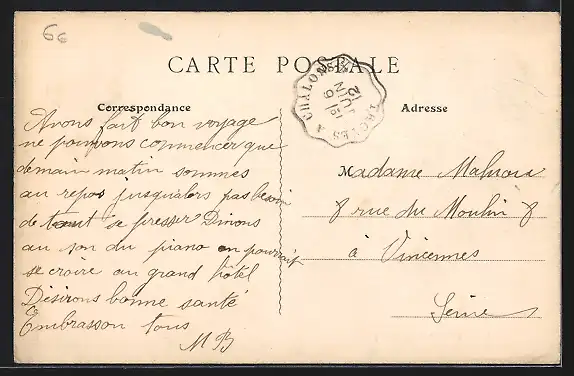 66
CARTE POSTALE
CHALONS
TROYES
12 JUIN
Correspondance
Adresse
Avons fait bon voyage
ne pouvons commencer que
demain matin sommes
au repos jusqu'alors pas besoin
de tout se presser Dinons
au son du piano on pourrait
se croire au grand hôtel
Désirons bonne santé
Embrasson tous
M B
Madame
8 rue du Moulin 8
à Vincennes
Seine